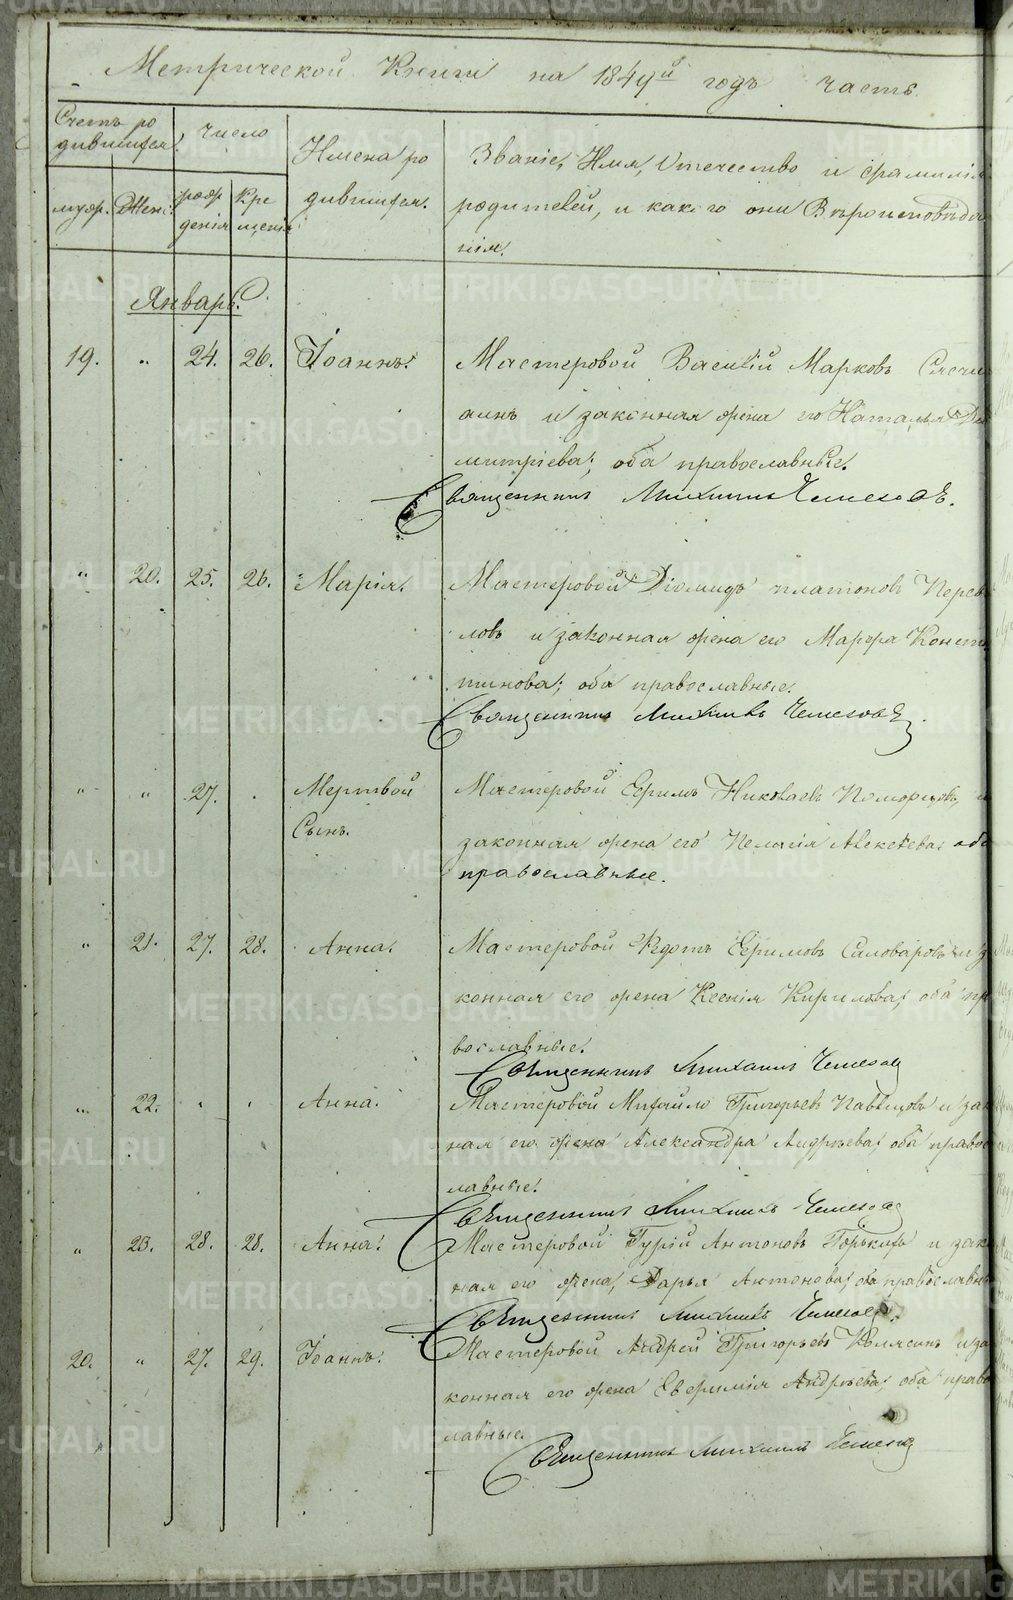 Метрической Книги на 1849й годъ часть
Счетъ ро
дившихся.
число
Имена ро
дившихся.
Званіе, Имя, Отчество и фамилія
родителей, и какого они Вѣроисповѣда
нія.
муж. Жен.
рож
денія
Кре
щенія
Январь.
19. " 24. 26. Іоаннъ. Мастеровой Василій Марковъ
и законная жена его Наталья Ди
митріева; оба православные.
Священникъ Михаилъ Чемесовъ.
" 20. 25. 26. Марія. Мастеровой Діомидъ платоновъ Перев
ловъ и законная жена его Марфа Конст
тинова; оба православные.
Священникъ Михаилъ Чемесовъ.
" " 27. Мертвой Мастеровой Ефимъ Николаевъ Поморцовъ, и
Сынъ. законная жена его Пелагія Алексѣева; оба
православные.
" 21. 27. 28. Анна. Мастеровой Федотъ Ефимовъ Силоваровъ и за
конная его жена Ксенія Кирилова; оба пр
вославные.
Священникъ Михаилъ Чемесовъ
" 22. " " Анна. Мастеровой Михайло Григорьевъ и зак
ная его жена Александра Андрѣева; оба правос
лавные.
Священникъ Михаилъ Чемесовъ
" 23. 28. 28. Анна. Мастеровой Гурій Антоновъ и зак
ная его жена, Дарья Антонова; оба православн
Священникъ Михаилъ Чемесовъ.
20. " 27. 29. Іоаннъ. Мастеровой Андрей Григорьевъ и за
конная его жена Евфимія Андрѣева; оба право
лавные.
Священникъ Михаилъ Чемесовъ
METRIKI.GASO-URAL.RU